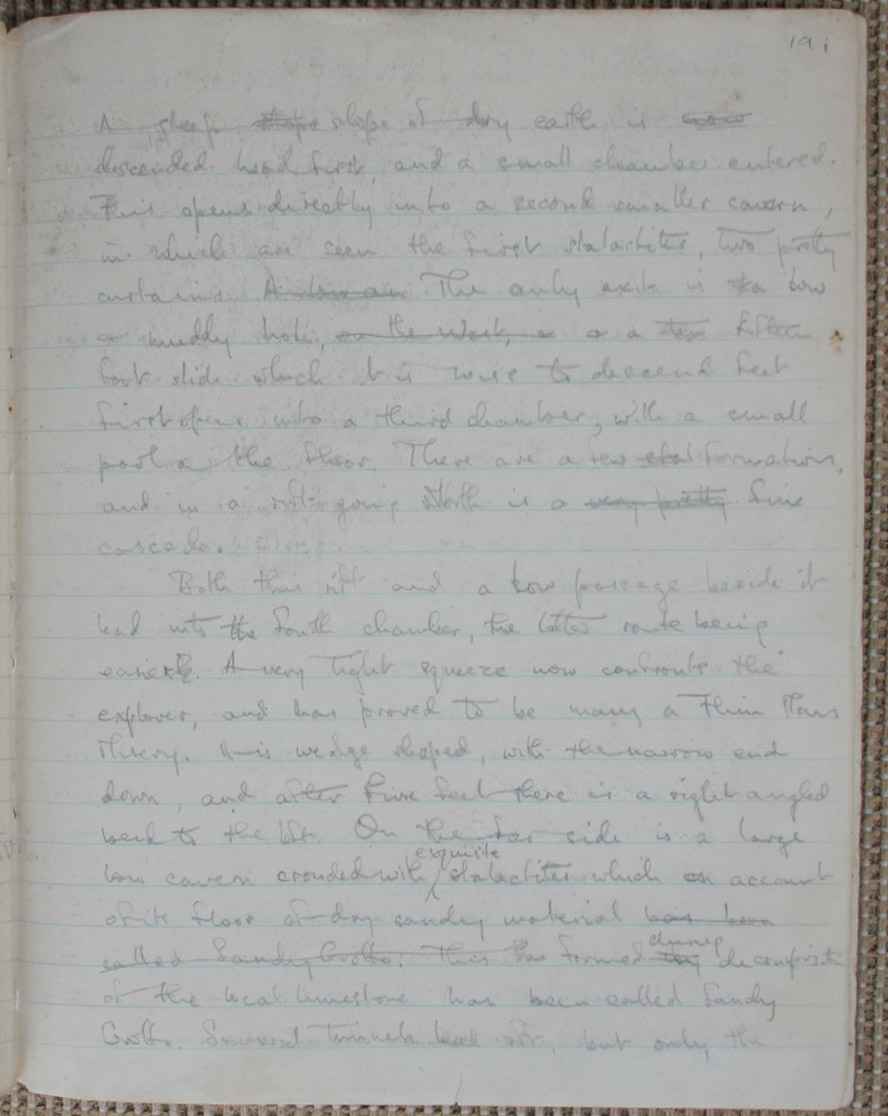 191
A steep slope of dry earth is
descended head first, and a small chamber entered.
This opens directly into a second smaller cavern,
in which are seen the first stalactites, two pretty
curtains. The only exit is a low
muddy hole, a fifteen
foot slide which it is wise to descend feet
first opens into a third chamber, with a small
pool in the floor. There are a few formations,
and in a rift going North is a fine
cascade.
Both this rift and a low passage beside it
lead into the fourth chamber, the latter route being
easier. A very tight squeeze now confronts the
explorer, and has proved to be many a Thin Mans
Misery. It is wedge shaped, with the narrow end
down, and after five feet there is a right angled
bend to the left. On the far side is a large
low cavern crowded with exquisite stalactites which on account
of its floor of dry sandy material has been
called Sandy Grotto. This has formed during decomposition
of the local limestone has been called Sandy
Grotto. Several Tunnels lead off, but only the